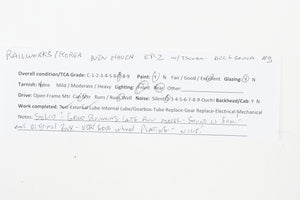 RAILWORKS/KOREA NEW HAVEN EP-2 W/TSUNAMI #3
Overall condition/TCA Grade: C-1-2-3-4-5-6-7-8-9 Paint: Y N Fair / Good / Excellent Glazing: Y N
Tarnish: None Mild / Moderate / Heavy Lighting: Front Rear Other:
Drive: Open Frame Mtr Can Mtr Runs / Runs Well Noise: Silent-2-3-4-5-6-7-8-9 Ouch! Backhead/Cab: Y N
Work completed: Test External Lube-Internal Lube/Gearbox Tube Replace-Gear Replace-Electrical-Mechanical
Notes: SOLID! GOOD RUNNING LATE RUN MODEL-
AND ORIGINAL BOX - VERY GOOD WHEEL PLATING - NICE.